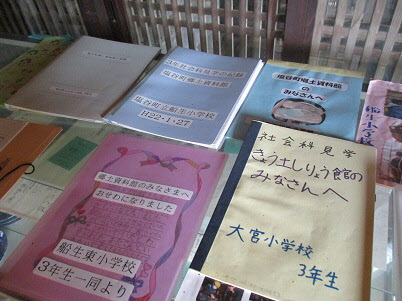 3年社会科見学の記録
塩谷町郷土資料館
塩谷町立船生小学校
H22・1・27
塩谷町郷土資料館
の
みなさんへ
郷土資料館のみなさまへ
おせわになりました
船生東小学校
3年生一同より
社会科見学
きょう土しりょう館の
みなさんへ
大宮小学校
3年生
船生小学校